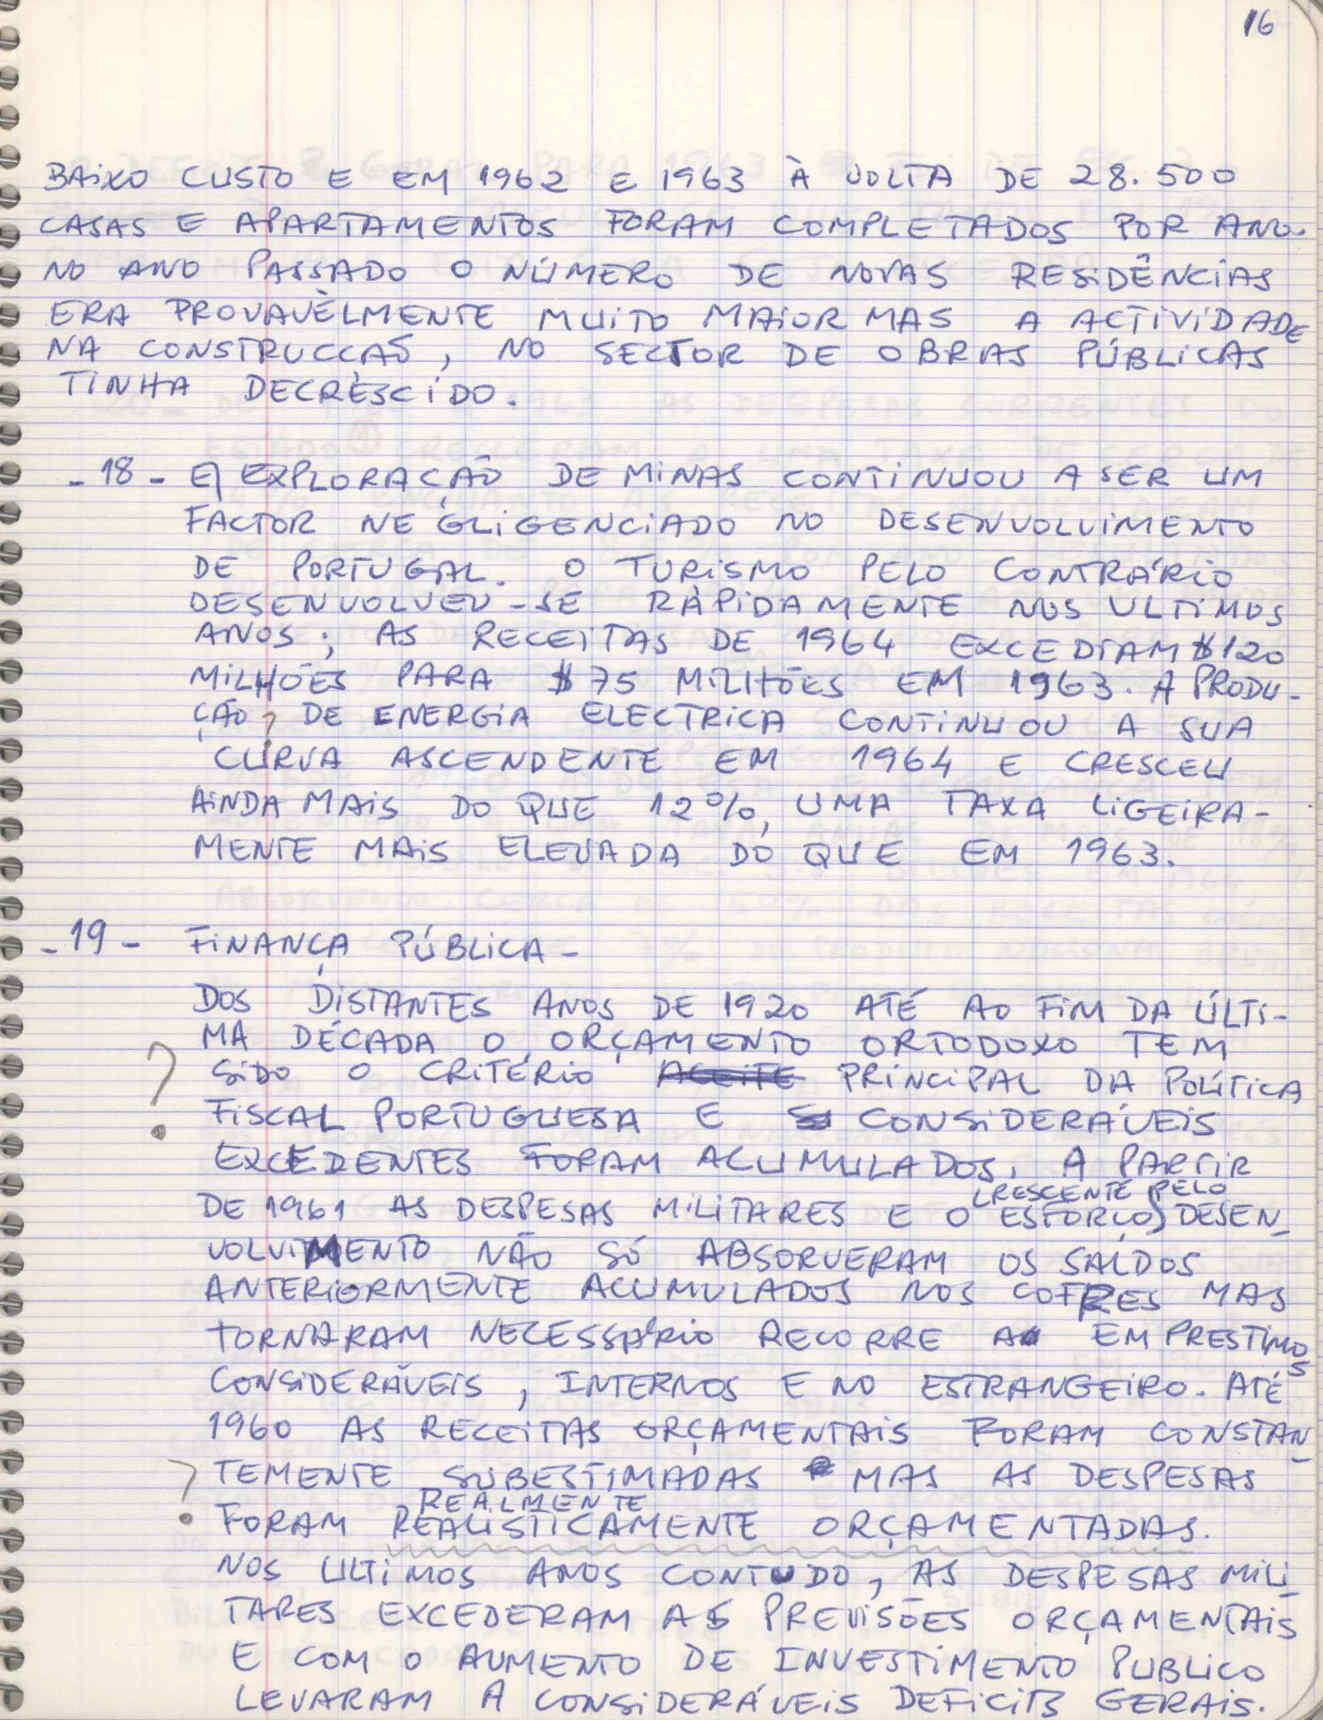 16
BAIXO CUSTO E EM 1962 E 1963 À VOLTA DE 28.500
CASAS E APARTAMENTOS FORAM COMPLETADOS POR ANO.
NO ANO PASSADO O NÚMERO DE NOVAS RESIDÊNCIAS
ERA PROVAVÈLMENTE MUITO MAIOR MAS A ACTIVIDADE
NA CONSTRUCÇÃO, NO SECTOR DE OBRAS PÚBLICAS
TINHA DECRESCIDO.
- 18 - A EXPLORAÇÃO DE MINAS CONTINUOU A SER UM
FACTOR NEGLIGENCIADO NO DESENVOLVIMENTO
DE PORTUGAL. O TURISMO PELO CONTRÁRIO
DESENVOLVEU-SE RÀPIDAMENTE NOS ULTIMOS
ANOS; AS RECEITAS DE 1964 EXCEDIAM $120
MILHÕES PARA $75 MILHÕES EM 1963. A PRODU-
ÇÃO, DE ENERGIA ELECTRICA CONTINUOU A SUA
CURVA ASCENDENTE EM 1964 E CRESCEU
AINDA MAIS DO QUE 12%, UMA TAXA LIGEIRA-
MENTE MAIS ELEVADA DO QUE EM 1963.
- 19 - FINANÇA PÚBLICA -
DOS DISTANTES ANOS DE 1920 ATÉ AO FIM DA ÚLTI-
MA DÉCADA O ORÇAMENTO ORTODOXO TEM
? SIDO O CRITÉRIO ACEITE PRINCIPAL DA POLÍTICA
FISCAL PORTUGUESA E CONSIDERÁVEIS
EXCEDENTES FORAM ACUMULADOS. A PARTIR
CRESCENTE PELO
DE 1961 AS DESPESAS MILITARES E O ESFORÇO DESEN-
VOLVIMENTO NÃO SÓ ABSORVERAM OS SALDOS
ANTERIORMENTE ACUMULADOS NOS COFRES MAS
TORNARAM NECESSÁRIO RECORRE A EMPRESTIMOS
CONSIDERÁVEIS, INTERNOS E NO ESTRANGEIRO. ATÉ
1960 AS RECEITAS ORÇAMENTAIS FORAM CONSTAN-
? TEMENTE SUBESTIMADAS MAS AS DESPESAS
REALMENTE
FORAM REALISTICAMENTE ORÇAMENTADAS.
NOS ULTIMOS ANOS CONTUDO, AS DESPESAS MILI-
TARES EXCEDERAM AS PREVISÕES ORÇAMENTAIS
E COM O AUMENTO DE INVESTIMENTO PUBLICO
LEVARAM A CONSIDERÁVEIS DEFICITS GERAIS.